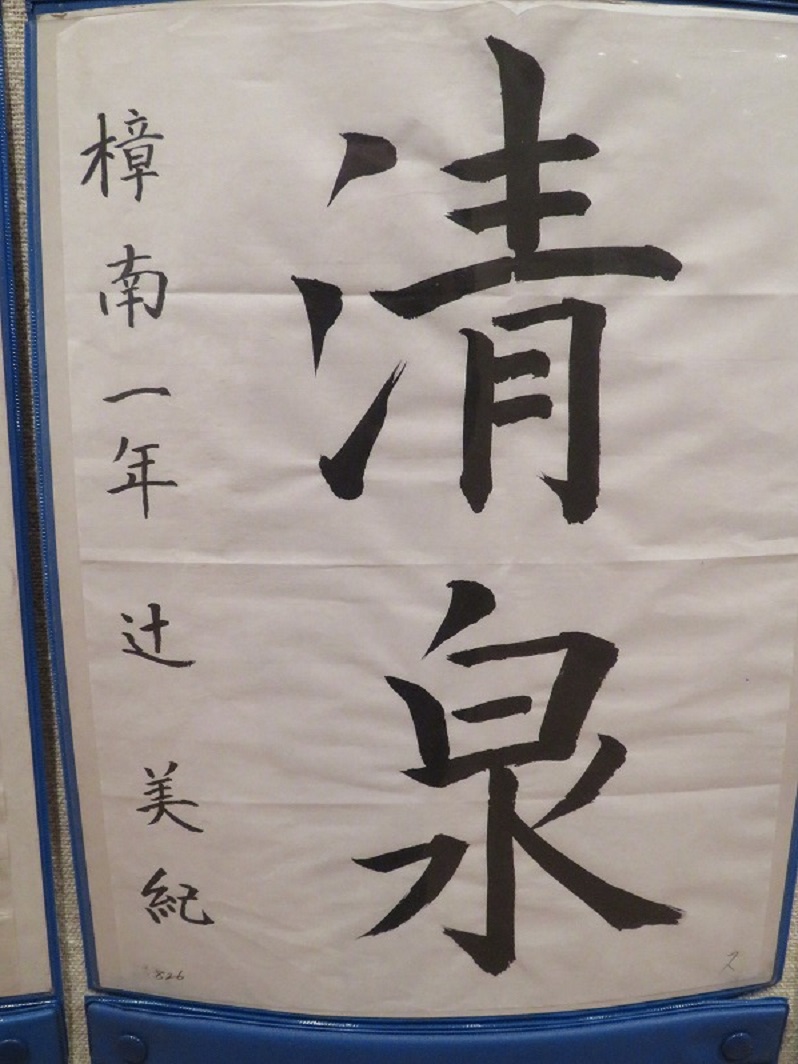 清泉
樟南一年 辻 美紀
826